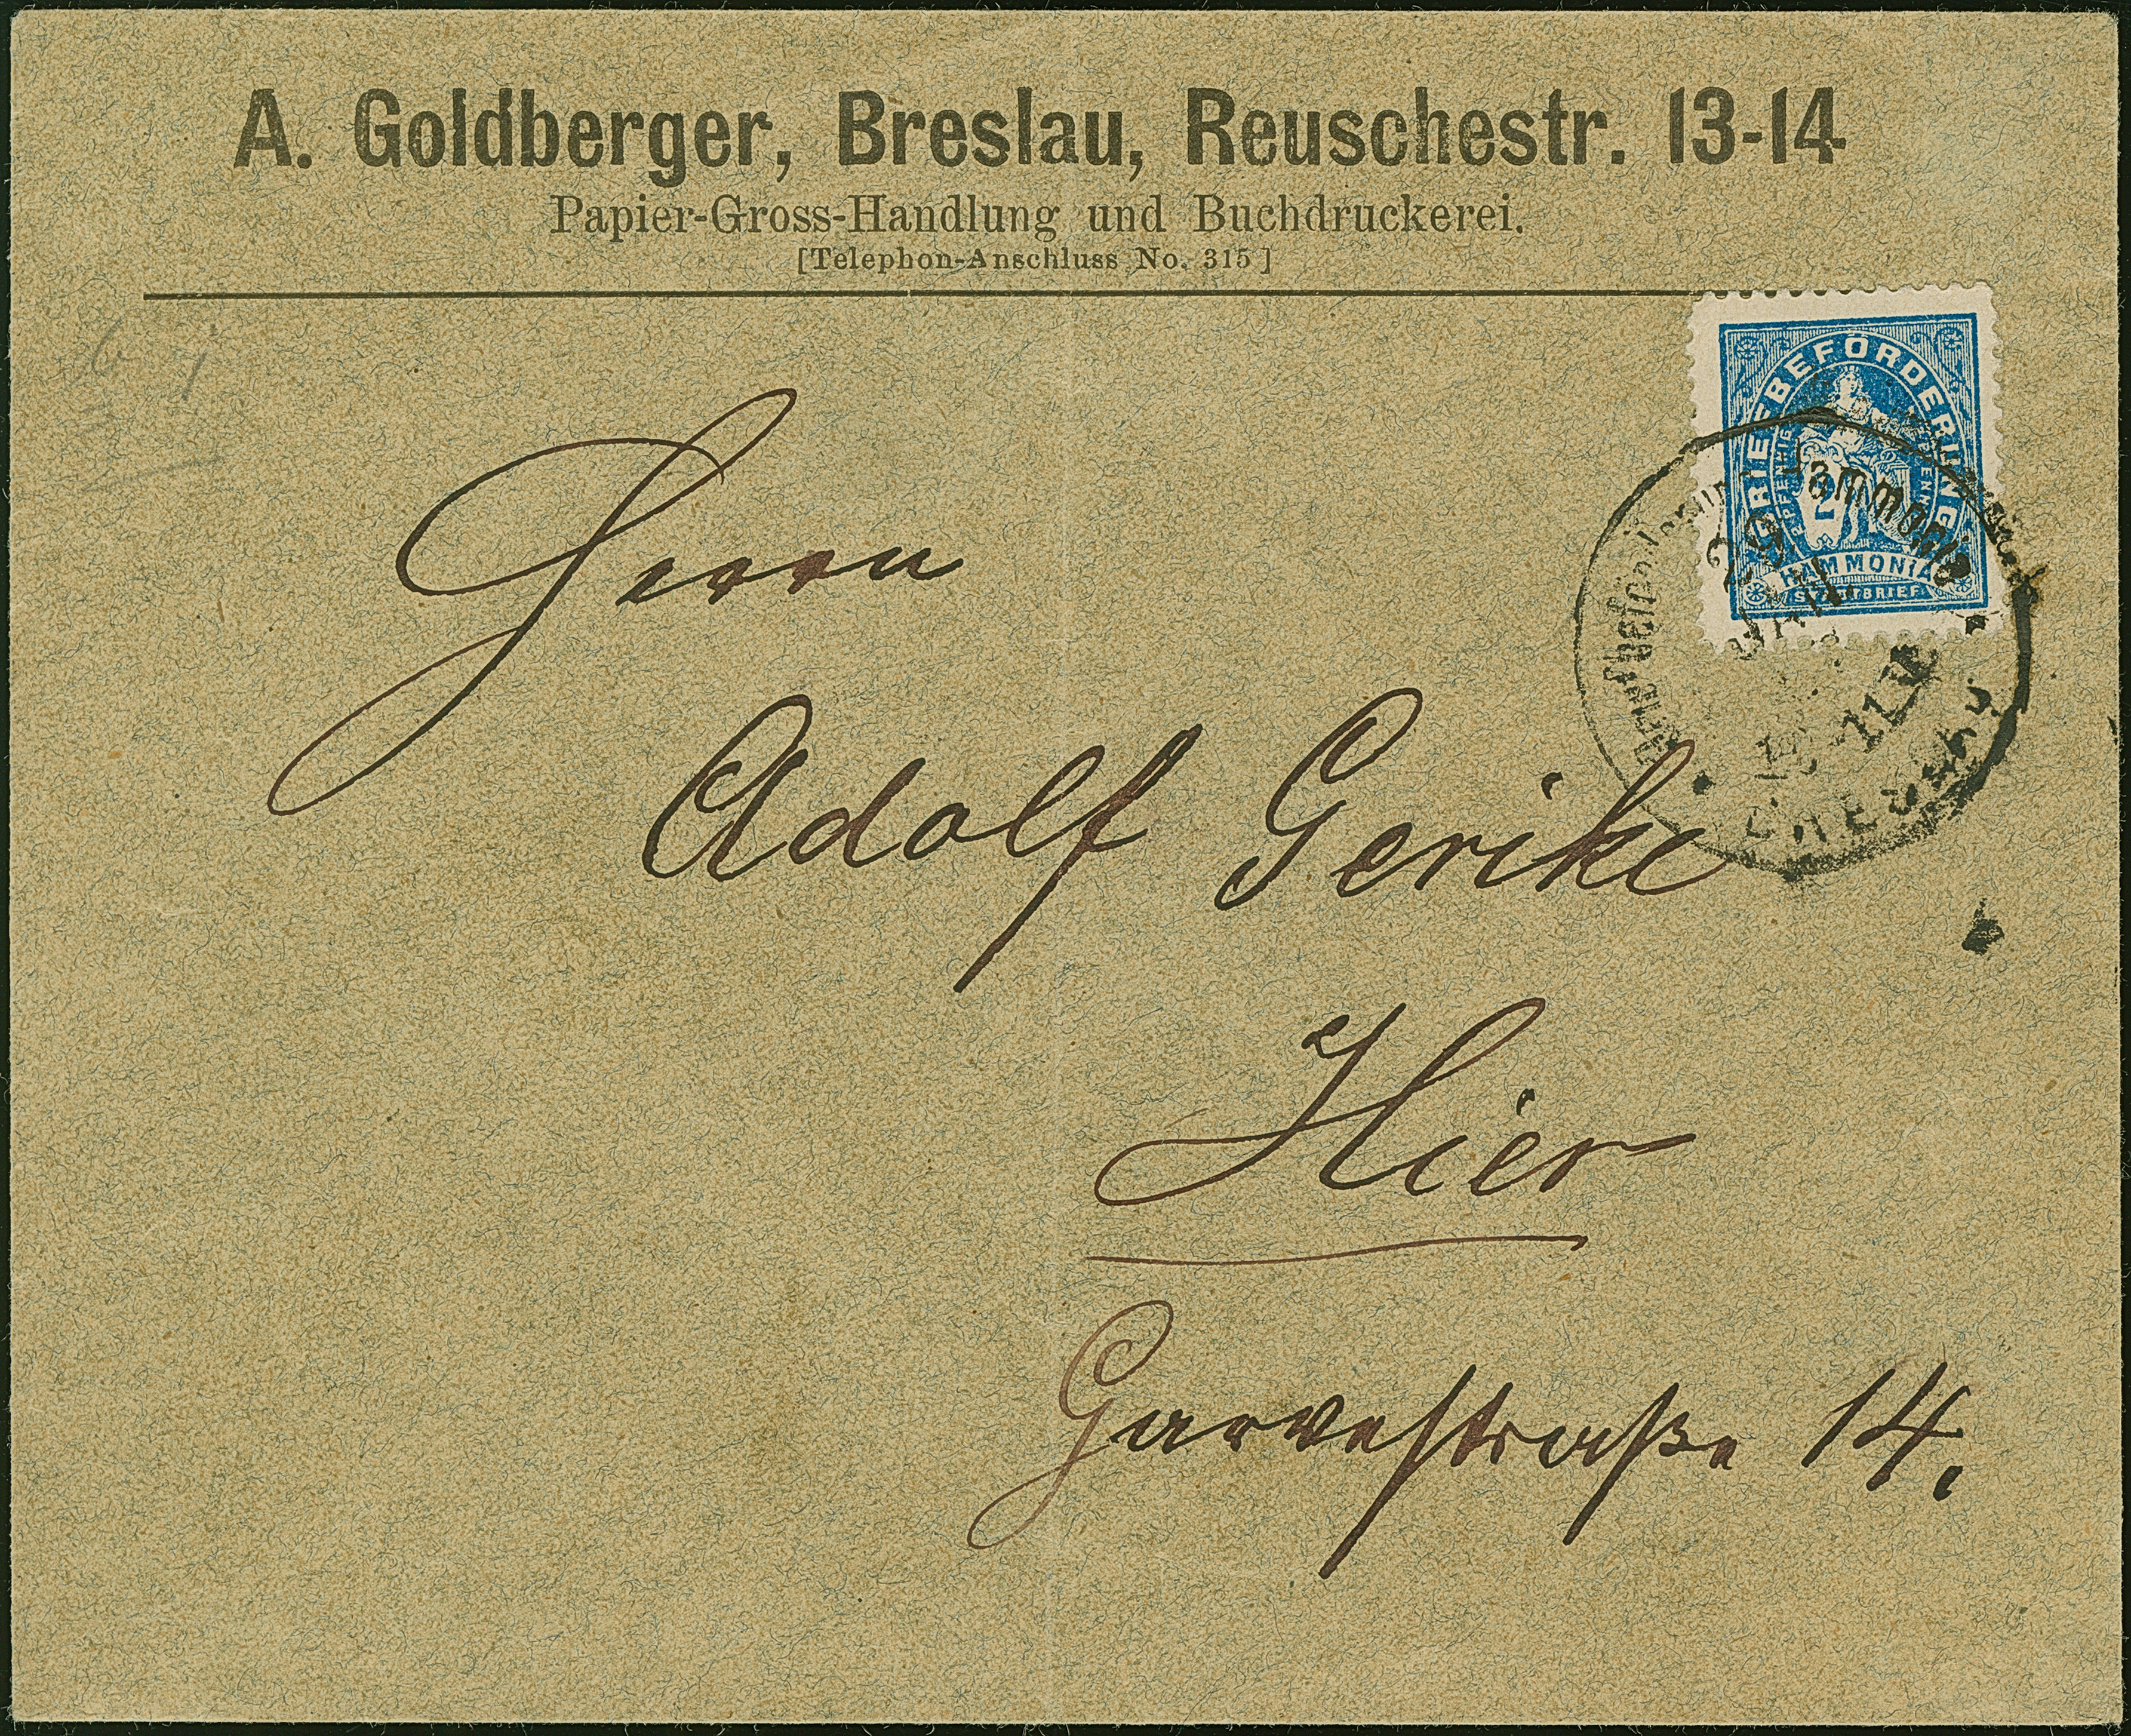 A. Goldberger, Breslau, Reuschestr. 13-14
Papier-Gross-Handlung und Buchdruckerei.
[Telephon-Anschluss No. 315]
BRIEFBEFÖRDERUNG
2
HAMMONIA
STADTBRIEF
Hammonia
29
Herrn
Adolf Gerike
Hier
Garvestraße 14.